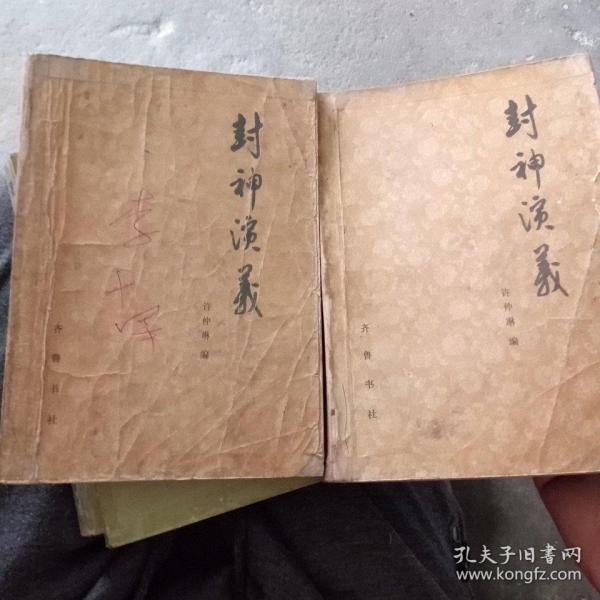 封神演義
许仲琳 编
齐鲁书社
封神演義
许仲琳 编
齐鲁书社
孔夫子旧书网
www.kongfz.com